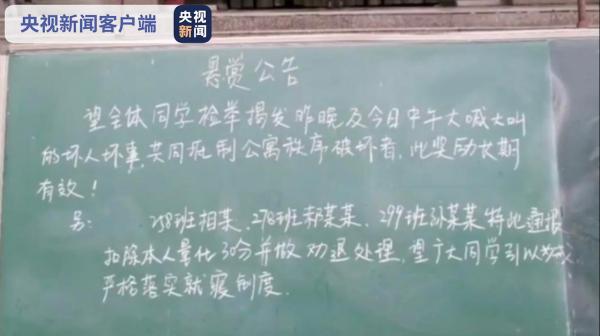 央视新闻客户端
央视
新闻
悬赏公告
望全体同学检举揭发昨晚及今日中午大喊大叫
的坏人坏事，共同抵制公寓秩序破坏者，此奖励长期
有效！
另： 258班相某、278班郝某某、299班孙某某特此通报
扣除本人量化30分并做劝退处理，望广大同学引以为戒
严格落实就寝制度.